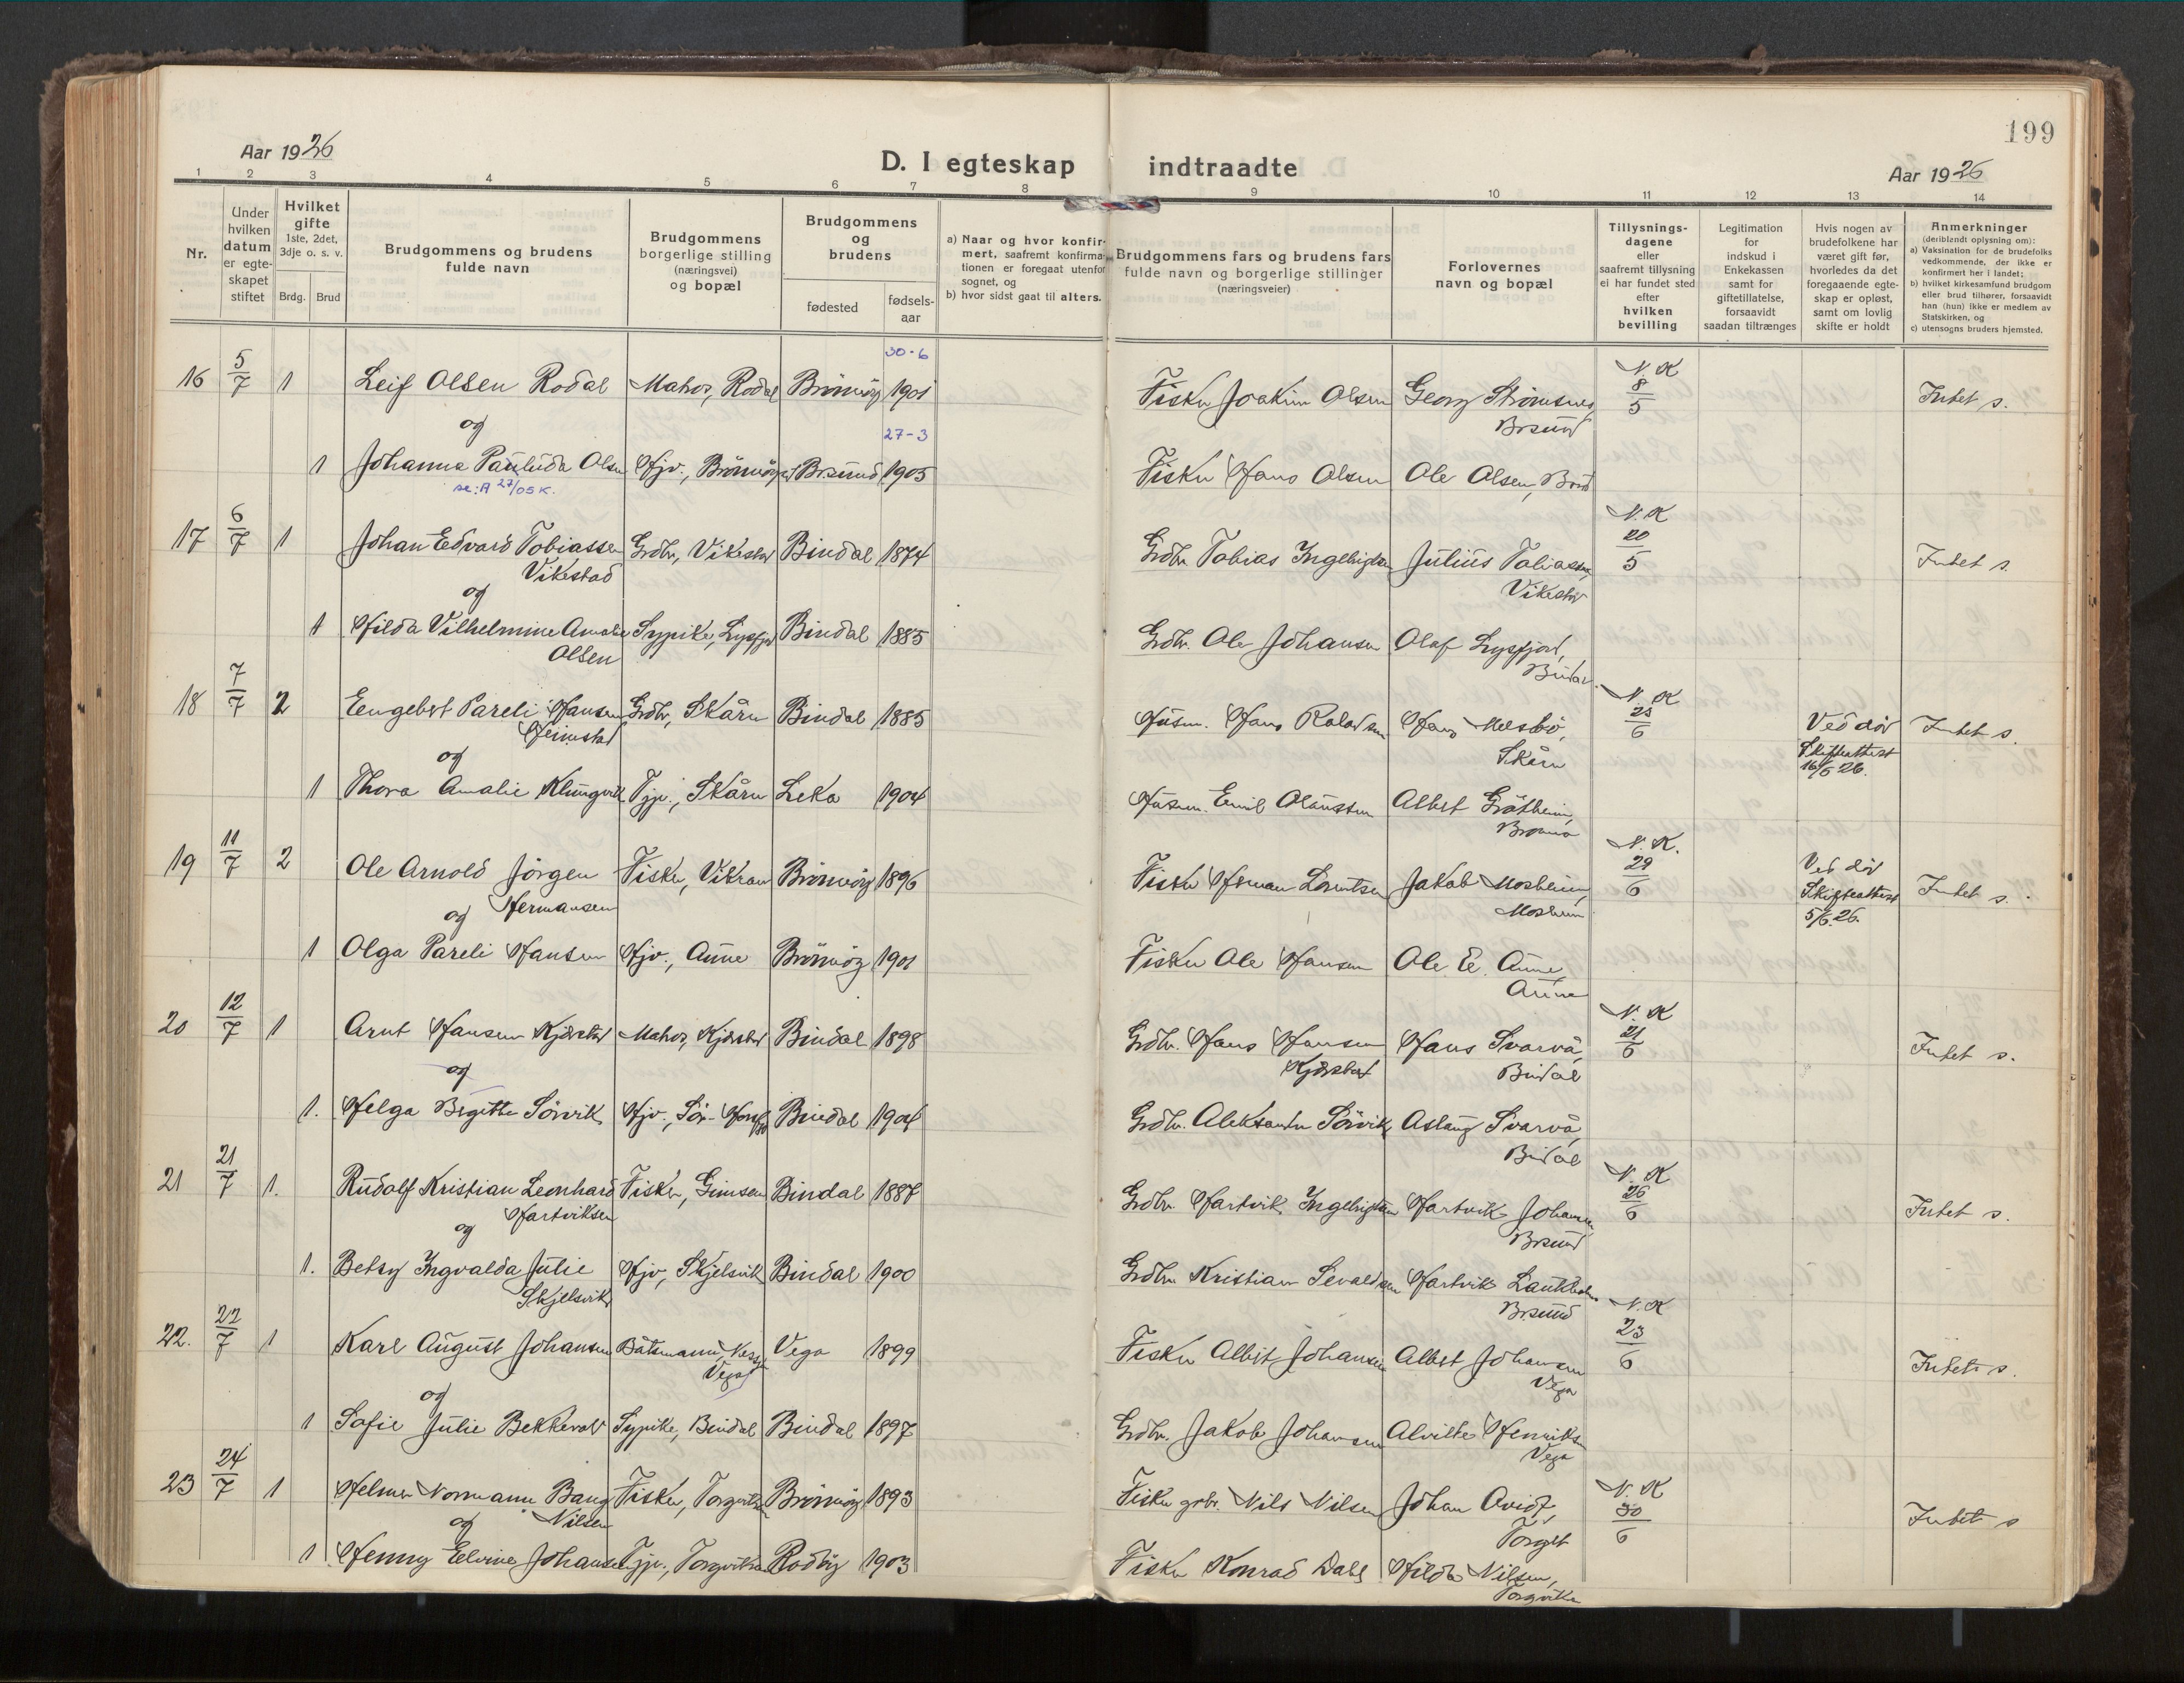 199
Aar 1926
D. I egteskap indtraadte
Aar 1926
1 2 3 4 5 6 7 8 9 10 11 12 13 14
Nr.
Under hvilken datum er egteskapet stiftet
Hvilket gifte 1ste, 2det, 3dje o. s. v.
Brdg. Brud
Brudgommens og brudens fulde navn
Brudgommens borgerlige stilling (næringsvei) og bopæl
Brudgommens og brudens
fødested
fødselsaar
a) Naar og hvor konfirmert, saafremt konfirmationen er foregaat utenfor sognet, og
b) hvor sidst gaat til alters.
Brudgommens fars og brudens fars fulde navn og borgerlige stillinger (næringsveier)
Forlovernes navn og bopæl
Tillysningsdagene eller saafremt tillysning ei har fundet sted efter hvilken bevilling
Legitimation for indskud i Enkekassen samt for giftetillatelse, forsaavidt saadan tiltrænges
Hvis nogen av brudefolkene har været gift før, hvorledes da det foregaaende egteskap er opløst, samt om lovlig skifte er holdt
Anmerkninger (deriblandt oplysning om):
a) Vaksination for de brudefolks vedkommende, der ikke er konfirmert her i landet;
b) hvilket kirkesamfund brudgom eller brud tilhører, forsaavidt han (hun) ikke er medlem av Statskirken, og
c) utensogns bruders hjemsted.
30-6
16 5/7 1 Leif Olsen Rodal Matros, Rodal Brönnöy 1901 Fisker Joakim Olsen Georg Strömsnes, Brsund N. K 8/5 Intet s.
og
27-3
1 Johanna Paulida Olsen Hjv., Brönnöysund Brsund 1905 Fisker Hans Olsen Ole Olsen, Brsd
se: A 27/05 K.
17 6/7 1 Johan Edvard Tobiassen Grdbr, Vikestad Bindal 1874 Grdbr. Tobias Ingebrigtsen Julius Tobiassen, N. K 20/5 Intet s.
Vikestad Vikestad
og
1 Hilda Vilhelmine Amalie Sypike, Lysfjord Bindal 1885 Grdbr. Ole Johansen Olaf Lysfjord,
Olsen Bindal
18 7/7 2 Engebret Pareli Hansen Grdbr, Skårn Bindal 1885 Husm. Hans Hans Melsbö, N. K 25/6 Ved död Intet s.
Heimstad Skårn Skifteattest 16/6 26.
og
1 Thora Amalie Klungvik Tjp., Skårn Leka 1904 Husm. Emil Olaussen Albert Grötheim,
19 11/7 2 Ole Arnold Jörgen Fisker, Vikran Brönnöy 1896 Fisker Herman Lorentsen Jakob Mosheim, N. K. 29/6 Ved död Intet s.
og Hermansen Mosheim Skifteattest 5/6 26.
1 Olga Pareli Hansen Hjv., Aune Brönnöy 1901 Fisker Ole Hansen Ole E. Aune,
Aune
20 12/7 1 Arnt Hansen Kjelstad Matros, Kjelstad Bindal 1898 Grdbr. Hans Hansen Hans Svarvå, N. K 21/6 Intet s.
og Kjelstad Bindal
1. Helga Birgitte Sörvik Hjv., Bindal 1904 Grdbr. Aleksander Sörvik Aslaug Svarvå,
Bindal
21 21/7 1. Rudolf Kristian Leonhard Fisker, Gimsen Bindal 1887 Grdbr. Hartvik Ingebrigtsen Hartvik Johansen, N. K 26/6 Intet s.
og Hartviksen Brsund
1. Betsy Ingvalda Julie Hjv, Skjelsvik Bindal 1900 Grdbr Kristian Sevaldsen Hartvik Laukholm
Skjelsvik Brsund
22. 22/7 1 Karl August Johansen Båtsmann, Vega 1899 Fisker Albert Johansen Albert Johansen N. K 23/6 Intet s.
Vega Vega
og
1 Sofie Julie Bekkevold Sypike, Bindal Bindal 1897 Grdbr. Jakob Johansen Alvilte Henriksen
Vega
23 24/7 1 Helmer Normann Bang Fisker, Torgvika Brönnöy 1893 Fisker grbr. Nils Nilsen Johan N. K 30/6 Intet s
og Nilsen Torget
1 Henny Elvine Johansen Tjp., Torgvika Rödöy 1903 Fisker Konrad Dahl Hilda Nilsen,
Torgvika